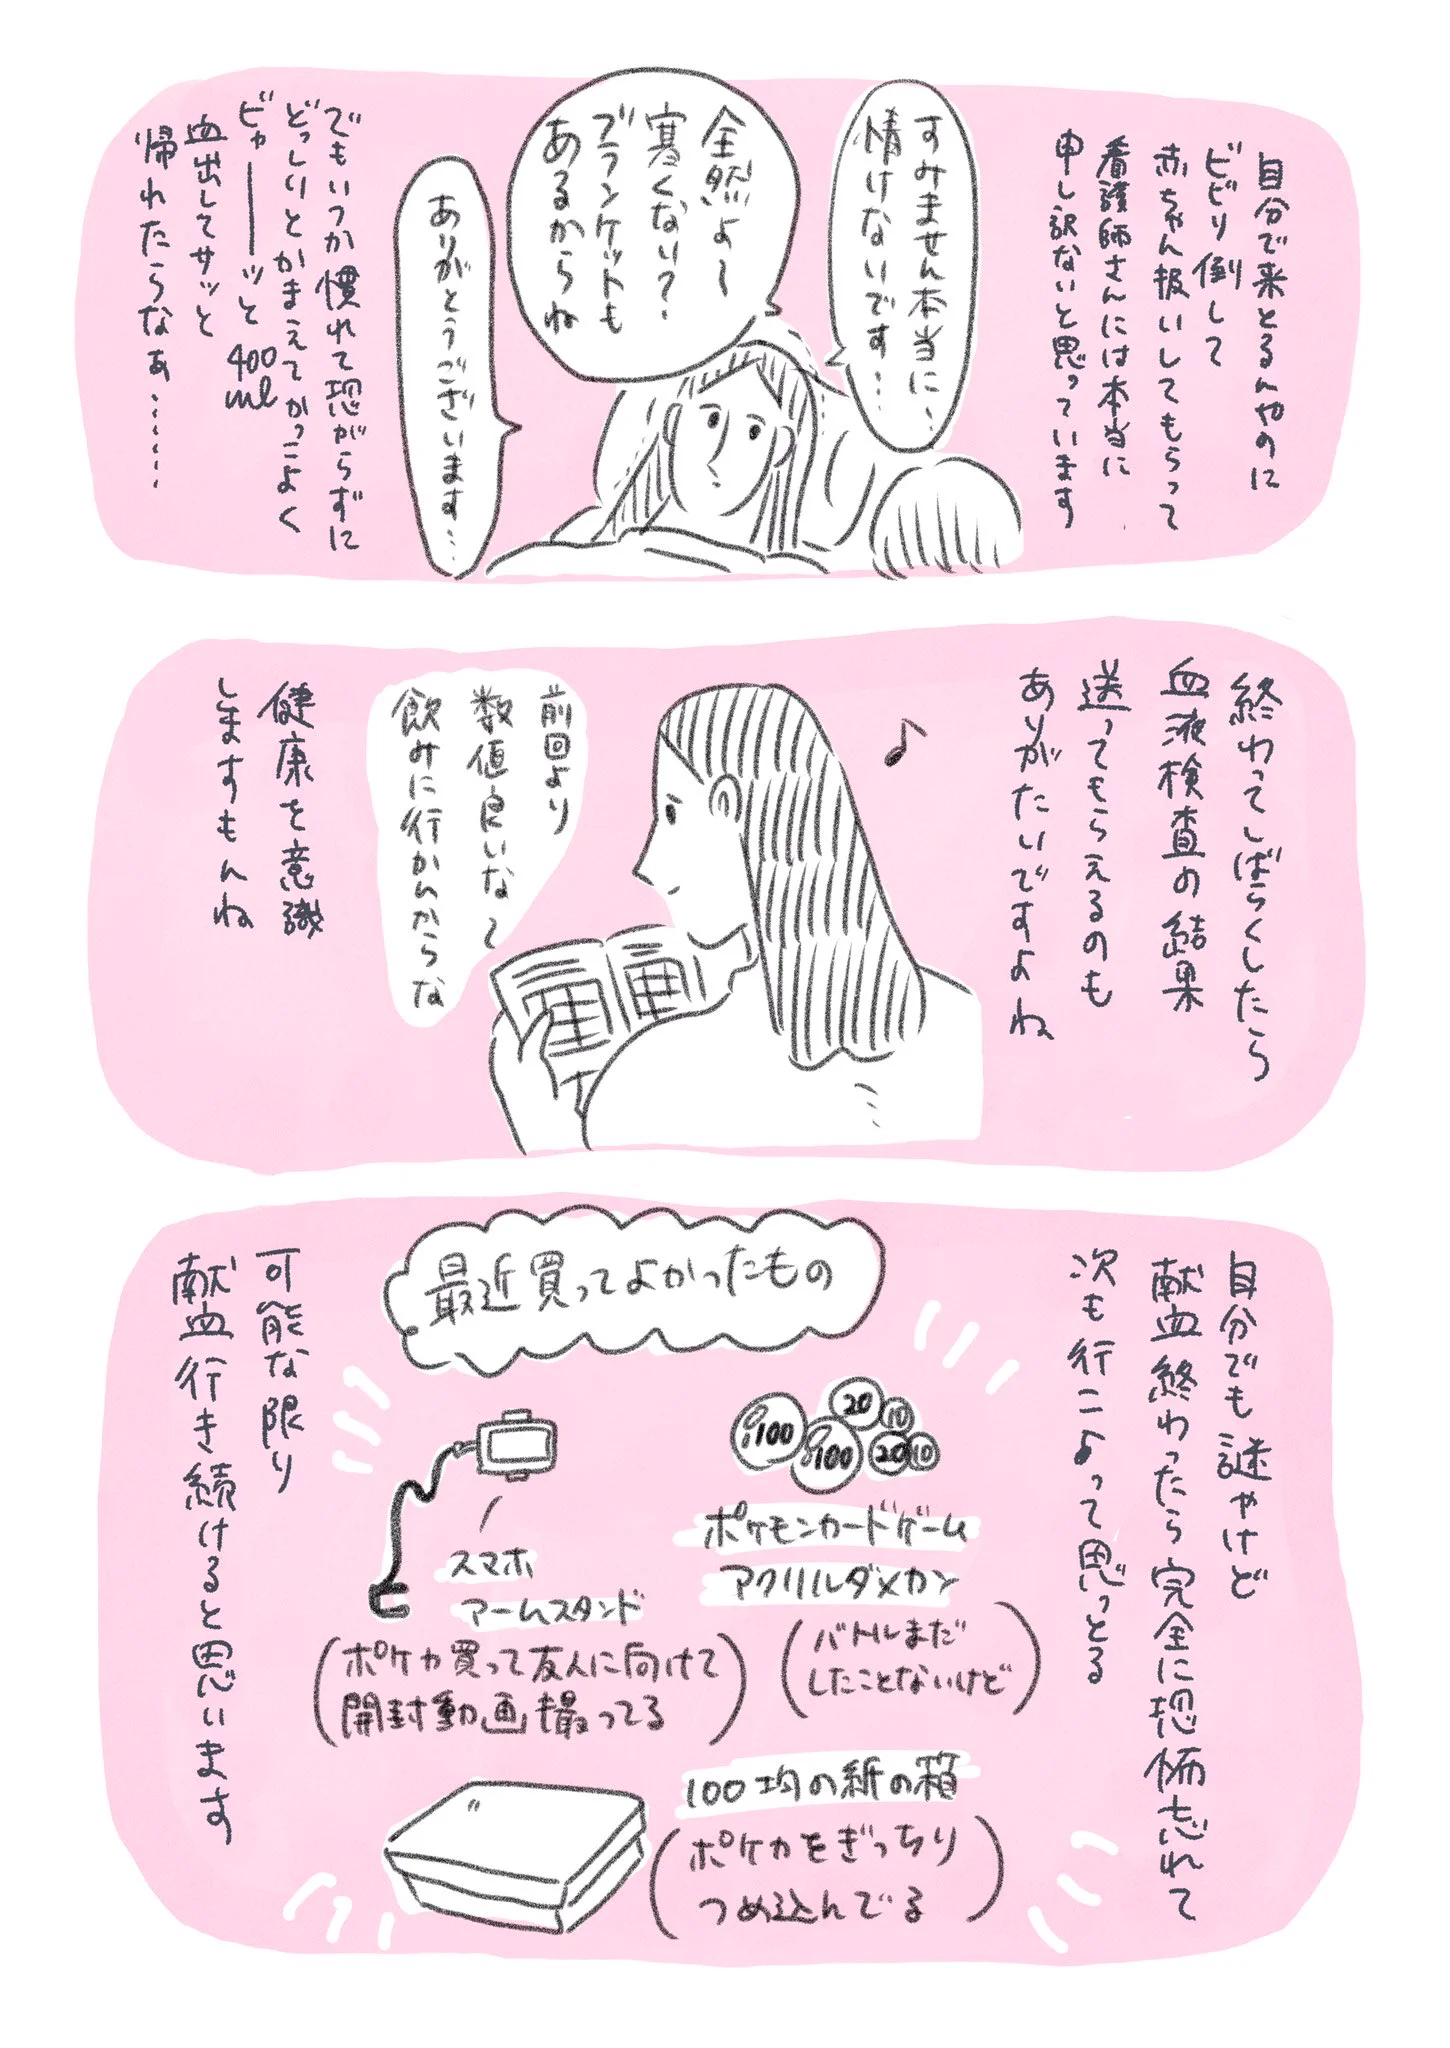 自分で来とるんやのに
ビビり倒して
赤ちゃん扱いしてもらって
看護師さんには本当に
申し訳ないと思っています
すみません本当に、
情けないです…
全然よ〜
寒くない?
ブランケットも
あるからね
ありがとうございます…
でもいつか慣れて恐がらずに
どっしりとかまえてかっこよく
ビャーーーッと400ml
血出してサッと
帰れたらなぁ……
終わってしばらくしたら
血液検査の結果
送ってもらえるのも
ありがたいですよね
前回より
数値良いな〜
飲みに行かんからな
健康を意識
しますもんね
自分でも謎やけど
献血終わったら完全に恐怖忘れて
次も行こよって思っとる
最近買ってよかったもの
100
100
20
10
20
10
ポケモンカードゲーム
アクリルダメカン
(バトルまだ
したことないけど)
スマホ
アームスタンド
(ポケカ買って友人に向けて
開封動画撮ってる)
100均の紙の箱
(ポケカをぎっちり
つめ込んでる)
可能な限り
献血行き続けると思います